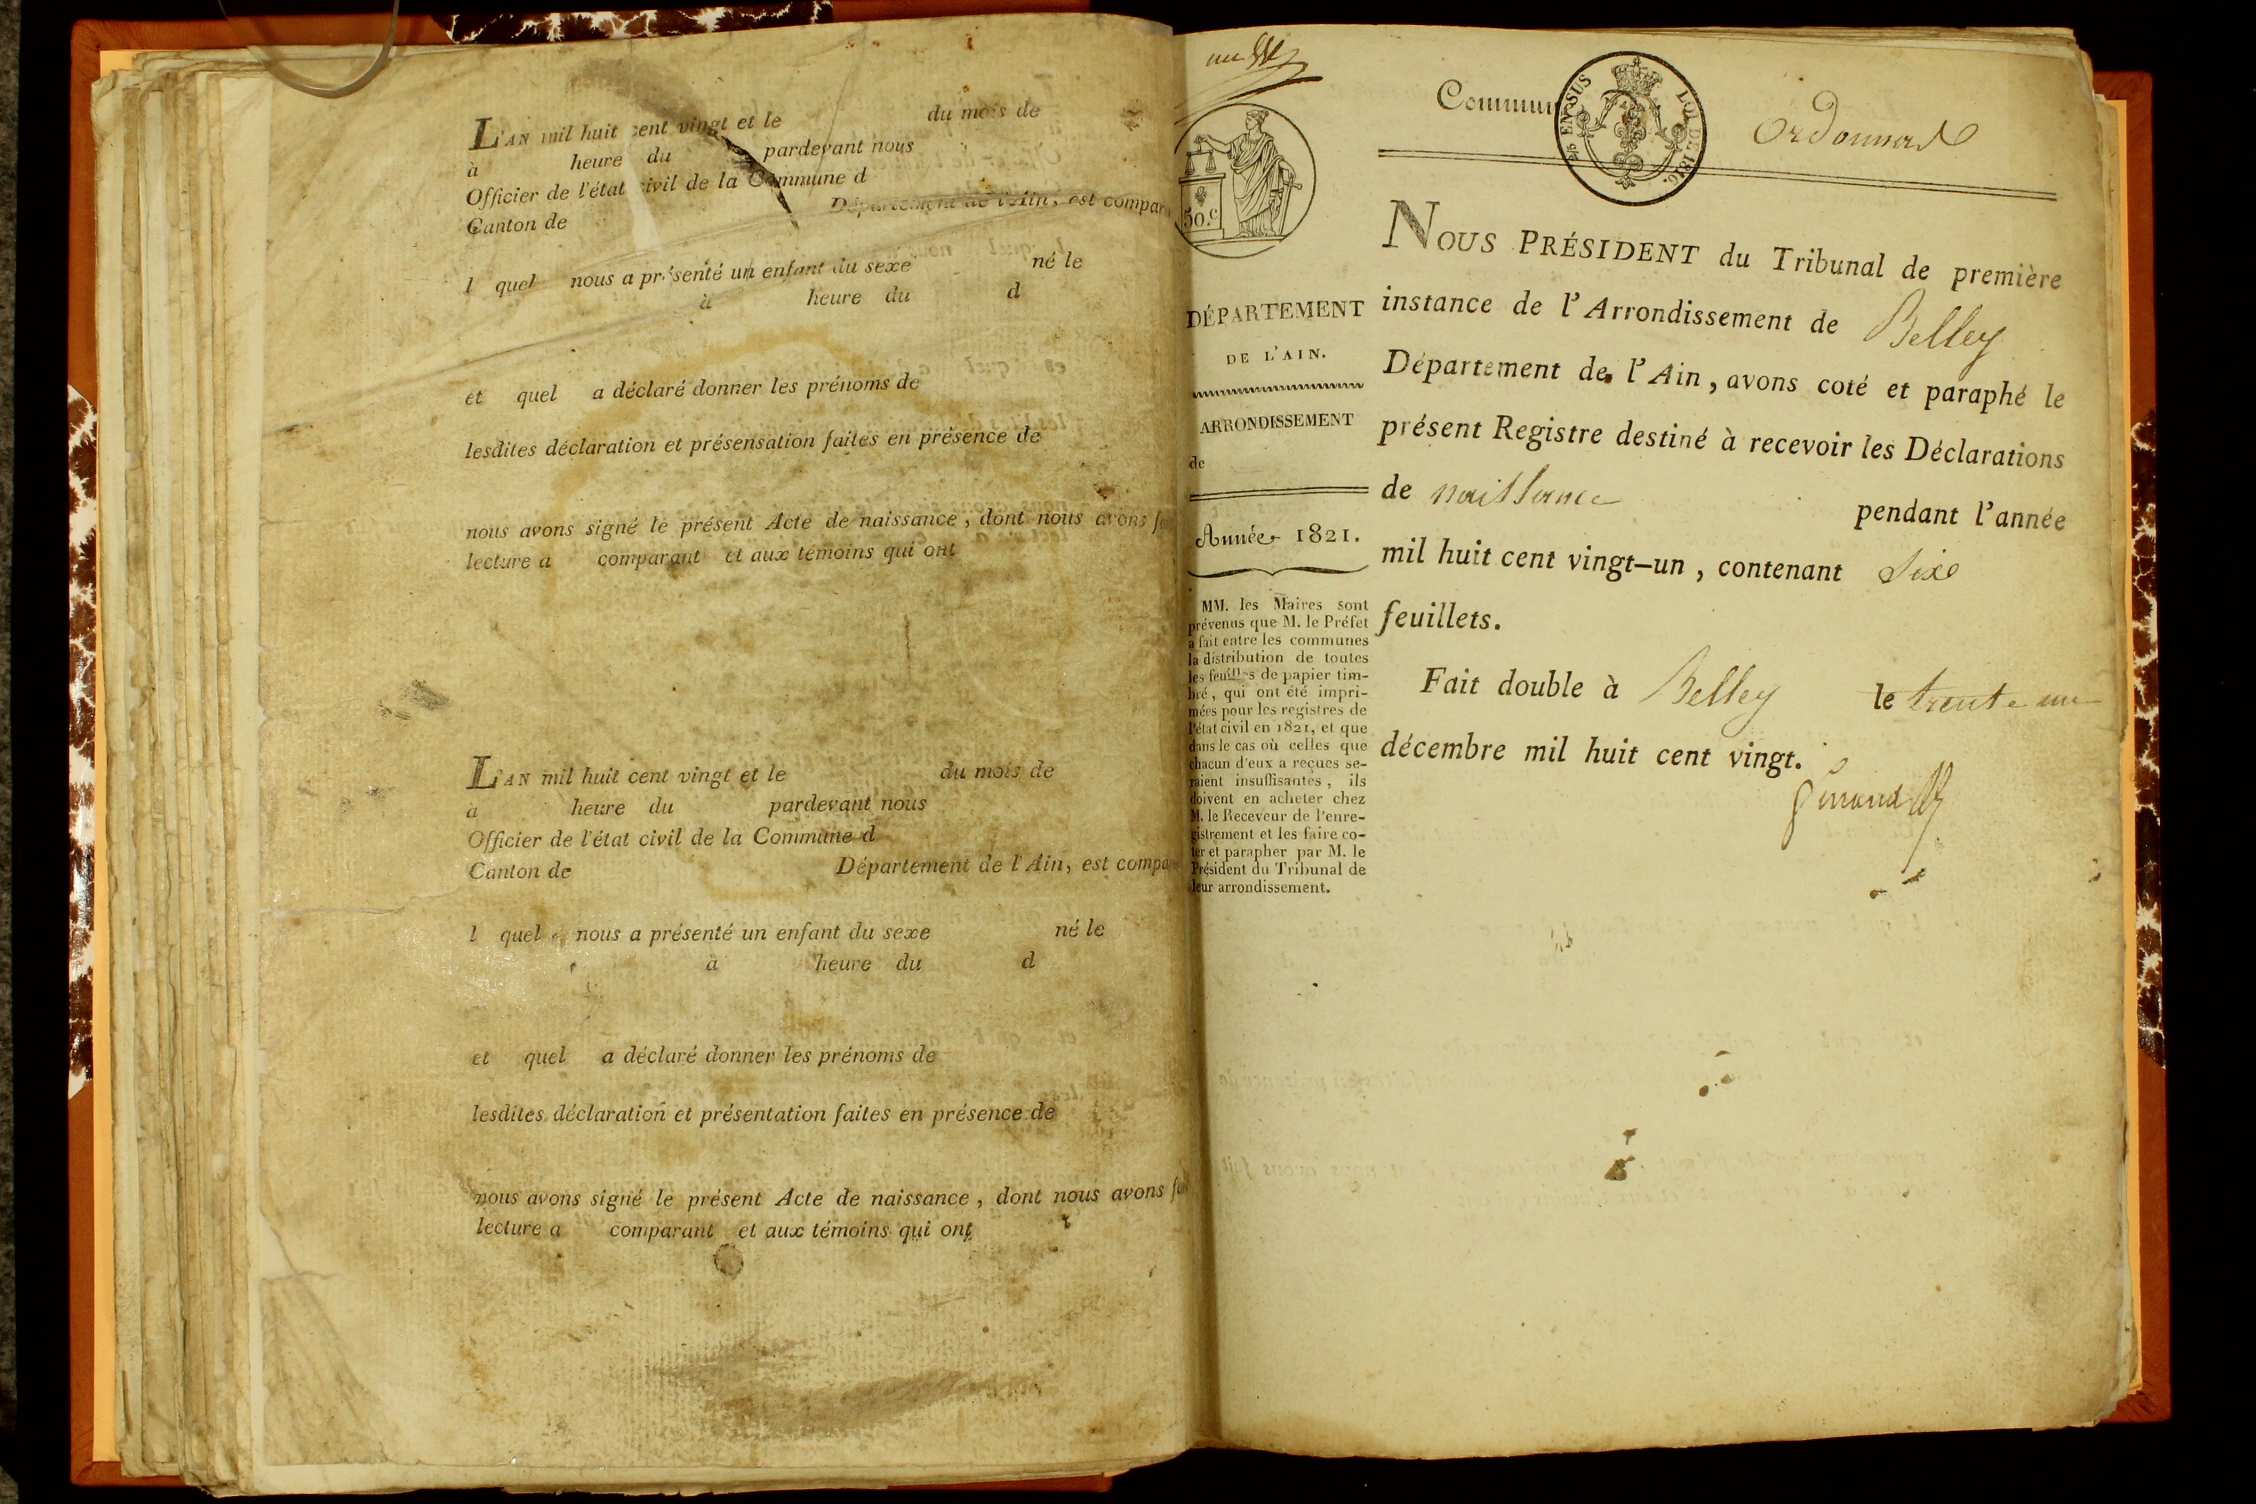 L'AN mil huit cent vingt et le du mois de
à heure du pardevant nous
Officier de l'état civil de la Commune d
Canton de Département de l'Ain, est compar
l quel nous a présenté un enfant du sexe né le
à heure du d
et quel a déclaré donner les prénoms de
lesdites déclaration et présensation faites en présence de
nous avons signé le présent Acte de naissance, dont nous avons
lecture a comparant et aux témoins qui ont
L'AN mil huit cent vingt et le du mois de
à heure du pardevant nous
Officier de l'état civil de la Commune d
Canton de Département de l'Ain, est compa
l quel nous a présenté un enfant du sexe né le
à heure du d
et quel a déclaré donner les prénoms de
lesdites déclaration et présentation faites en présence de
nous avons signé le présent Acte de naissance, dont nous avons
lecture a comparant et aux témoins qui ont
50.c
DÉPARTEMENT
DE L'AIN.
ARRONDISSEMENT
de
Année 1821.
MM. les Maires sont
prévenus que M. le Préfet
a fait entre les communes
la distribution de toutes
les feuilles de papier tim-
bré, qui ont été impri-
mées pour les registres de
l'état civil en 1821, et que
dans le cas où celles que
chacun d'eux a reçues se-
raient insuffisantes, ils
doivent en acheter chez
M. le Receveur de l'enre-
gistrement et les faire co-
ter et parapher par M. le
Président du Tribunal de
leur arrondissement.
Commun Ordonnas
EN SUS LOI DE 1816.
NOUS PRÉSIDENT du Tribunal de première
instance de l'Arrondissement de Belley
Département de l'Ain, avons coté et paraphé le
présent Registre destiné à recevoir les Déclarations
de naissance pendant l'année
mil huit cent vingt-un, contenant Six
feuillets.
Fait double à Belley le trente un
décembre mil huit cent vingt.